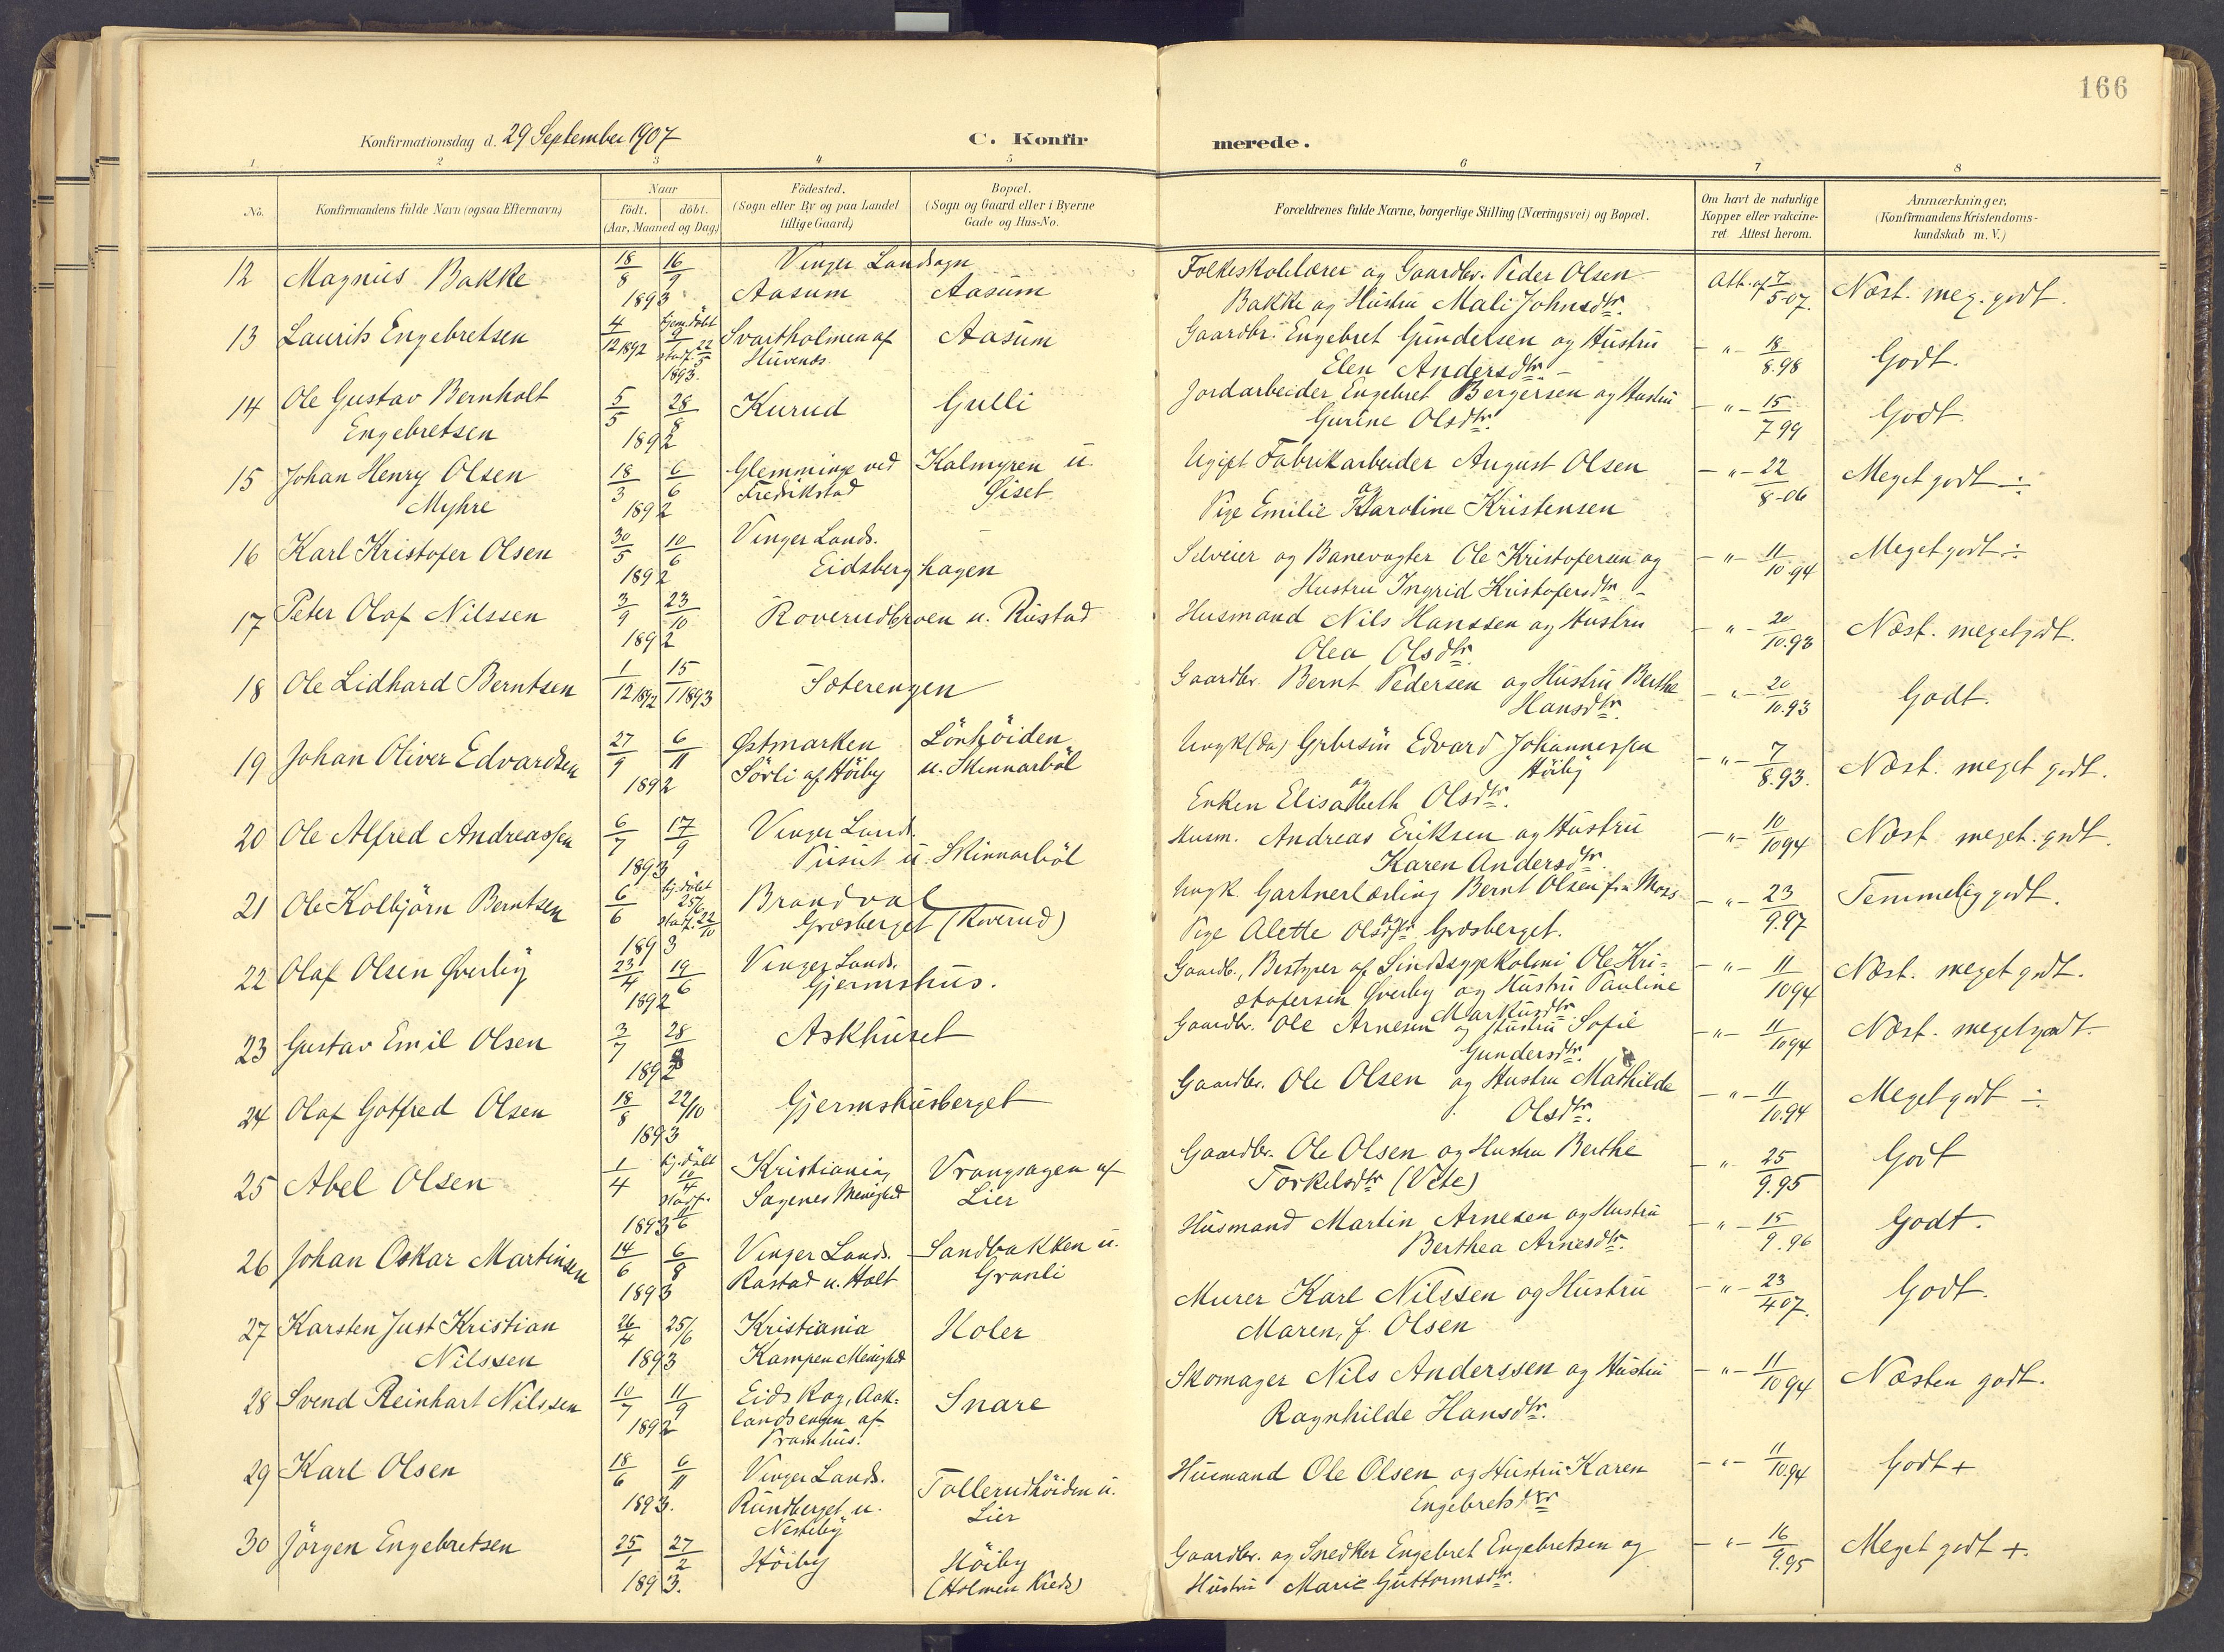 166
Konfirmationsdag d. 29 September 1907
C. Konfir
merede.
1 2 3 4 5 6 7 8
No.
Konfirmandens fulde Navn (ogsaa Efternavn)
Naar
födt. döbt.
(Aar, Maaned og Dag)
Födested.
(Sogn eller By og paa Landet
tillige Gaard)
Bopæl.
(Sogn og Gaard eller i Byerne
Gade og Hus-No.
Forældrenes fulde Navne, borgerlige Stilling (Næringsvei) og Bopæl.
Om havt de naturlige
Kopper eller vakcine-
ret. Attest herom.
Anmærkninger.
(Konfirmandens Kristendoms-
kundskab m. V.)
12 Magnus Bakke 18/8 16/9 1893 Vinger Landsogn
Aasum Aasum
Folkeskolelærer og Gaardbr. Peder Olsen
Bakke og Hustru Mali Johnsdtr.
Att. af 7/5-07. Næst. meg. godt.
13 Laurits Engebretsen 4/12 1892 hjemdöbt stadf. 22/5 1893.
Svartholmen af Aasum
Gaardbr. Engebret Gundersen og Hustru
Elen Andersdtr. -
- " - 18/8.98 Godt.
14 Ole Gustav Bernholt
Engebretsen 5/5 28/8 1892
Kurud Gulli
Jordarbeider Engebret Bergersen og Hustru
Gurine Olsdtr.
- " - 15/7 99 Godt.
15 Johan Henry Olsen
Myhre 18/3 6/6 1892
Glemminge ved Kalmyren u.
Fredrikstad Öiset
Ugift Fabrikarbeider August Olsen
og
Pige Emilie Karoline Kristensen
- " - 22/8-06 Meget godt ÷
16 Karl Kristofer Olsen 30/5 10/6 1892
Vinger Lands.
Eidsberghagen
Selveier og Banevogter Ole Kristofersen og
Hustru Ingrid Kristofersdtr. -
- " - 11/10.94 Meget godt ÷
17 Peter Olaf Nilssen 3/9 23/10 1892
Roverudbroen u. Rustad
Husmand Nils Hanssen og Hustru
Olea Olsdtr.
- " - 20/10.93 Næst. meget godt.
18 Ole Lidhard Berntsen 1/12 1892 15/1 1893
Sæterengen
Gaardbr. Bernt Pedersen og Hustru Berthe
Hansdtr.
- " - 20/10.93 Godt.
19 Johan Oliver Edvardsen 27/9 6/11 1892
Østmarken Lönhöiden
Sörli af Höiby u. Skinnarböl
Ungk (da) Grbrsön Edvard Johannessen
Höiby
og
Enken Elisabeth Olsdtr.
- " - 7/8.93. Næst. meget godt.
20 Ole Alfred Andreassen 6/7 17/9 1893
Vinger Lands.
u. Skinnarböl
Husm. Andreas Eriksen og Hustru
Karen Andersdtr.
- " - 10/1094 Næst meget godt.
21 Ole Kolbjörn Berntsen 6/6 hj. döbt 25/6 stadf. 22/10 1893
Brandval
Græsberget (Roverud)
Ungk. Gartnerlærling Bernt Olsen fra Moss
og
Pige Alette Olsdtr. Græsberget.
- " - 23/9.97 Temmelig godt.
22 Olaf Olsen Øverby 23/4 19/6 1892
Vinger Lands.
Gjermshus.
Gaardb., Bestyrer af Sindssygekoloni Ole Kri-
stofersen Øverby og Hustru Pauline
Markusdtr.
- " - 11/1094 Næst. meget godt.
23 Gustav Emil Olsen 3/7 28/8 1892
Askhuset
Gaardbr. Ole Arnesen og Hustru Sofie
Gundersdtr.
- " - 11/1094 Næst. meget godt.
24 Olaf Gotfred Olsen 18/8 22/10 1893
Gjermshusberget
Gaardbr. Ole Olsen og Hustru Mathilde
Olsdtr.
- " - 11/10.94 Meget godt ÷
25 Abel Olsen 1/4 hj. döbt 10/4 stadf. 11/6 1893
Kristiania, Vrangsagen af
Sagenes Menighed Lier
Gaardbr. Ole Olsen og Hustru Berthe
Torkelsdtr (Vete)
- " 25/9.95 Godt
26 Johan Oskar Martinsen 14/6 6/8 1893
Vinger Lands. Sandbakken u.
Rastad u. Holt Granli
Husmand Martin Arnesen og Hustru
Berthea Arnesdtr.
- " - 15/9.96 Godt.
27 Karsten Just Kristian
Nilssen 26/4 25/6 1893
Kristiania Holer
Kampen Menighed
Murer Karl Nilssen og Hustru
Maren, f. Olsen
- " - 23/4 07. Godt.
28 Svend Reinhart Nilssen 10/7 11/9 1892
Eidskog, Aak-
landsengen af Snare
Skomager Nils Anderssen og Hustru
Ragnhilde Hansdtr.
- " - 11/10 94 Næsten godt.
29 Karl Olsen 18/6 6/11 1893.
Vinger Lands. Tollerudhöiden u.
Rundberget u. Lier
Husmand Ole Olsen og Hustru Karen
Engebretsdtr
- " - 11/10.94 Godt +
30 Jörgen Engebretsen 25/1 27/2 1893.
Höiby Höiby
(Holmen Kreds)
Gaardbr. og Snedker Engebret Engebretsen og
Hustru Marie Guttormsdtr.
- " - 16/9.95 Meget godt +.